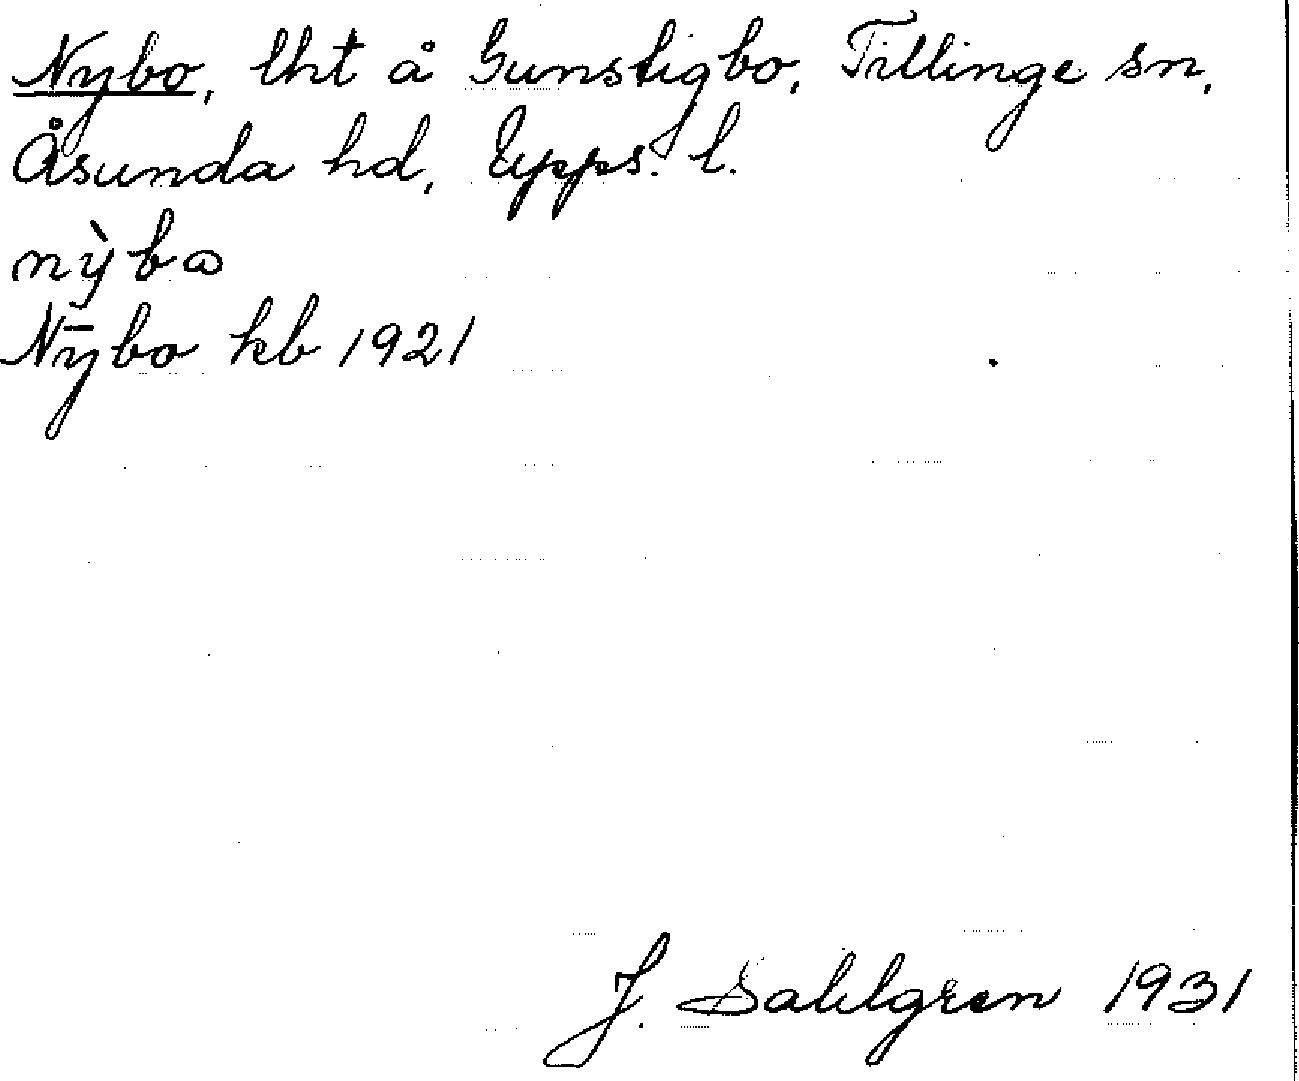 Nybo, lht å Gunstigbo, Tillinge sn,
Åsunda hd, Upps. l.
nỳbꙍ
Nȳbo kb 1921
J. Sahlgren 1931